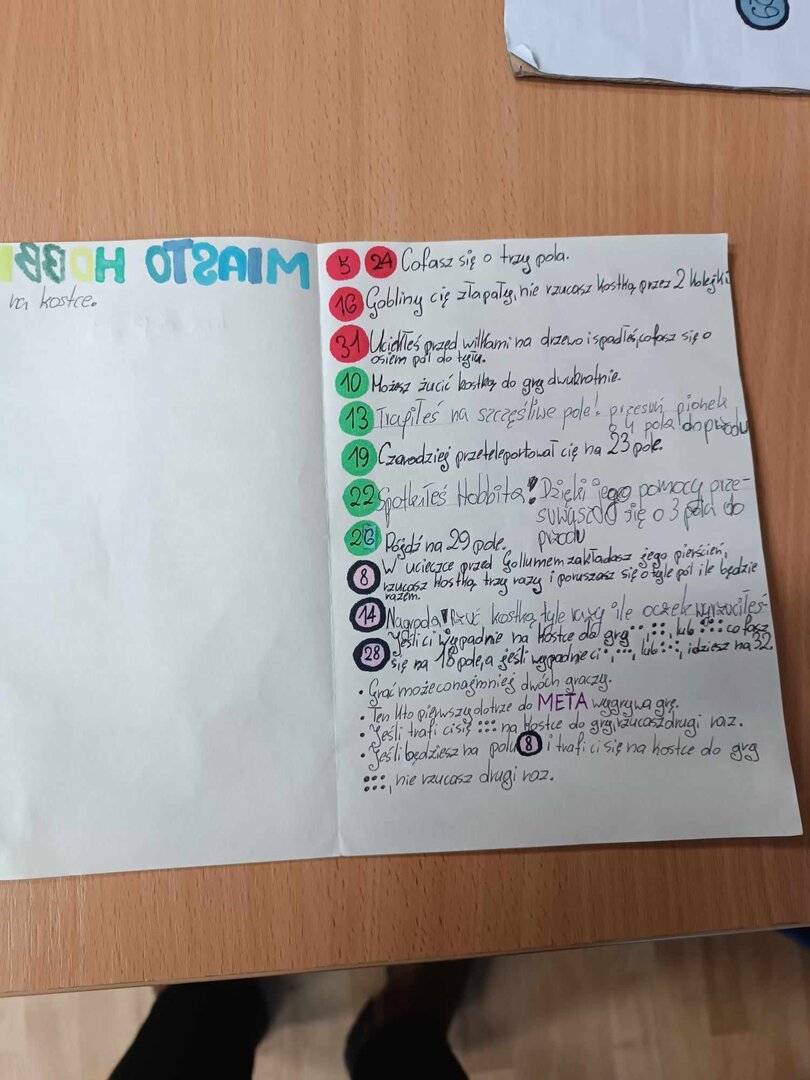 MIASTO HOBBI
na kostce.
5 24 Cofasz się o trzy pola.
16 Gobliny cię złapały, nie rzucasz kostką przez 2 kolejki
31 Uciekłeś przed wilkami na drzewo i spadłeś, cofasz się o
osiem pól do tyłu.
10 Możesz żucić kostką do gry dwukrotnie.
13 Trafiłeś na szczęśliwe pole! przesuń pionek
o 4 pola do przodu
19 Czarodziej przeteleportował cię na 23 pole.
22 Spotkałeś Hobbita! Dzięki jego pomocy prze-
suwasz się o 3 pola do
przodu
26 Pójdź na 29 pole.
8 W ucieczce przed Gollumem zakładasz jego pierścień,
rzucasz kostką trzy razy i poruszasz się o tyle pól ile będzie
razem.
14 Nagroda! rzuć kostką tyle razy ile oczek wyrzuciłeś
28 Jeśli ci wypadnie na kostce do gry lub cofasz
się na 18 pole, a jeśli wypadnie ci lub idziesz na 32.
• Grać może co najmniej dwóch graczy.
• Ten kto pierwszy dotrze do META wygrywa grę.
• Jeśli trafi ci się na kostce do gry, rzucasz drugi raz.
• Jeśli będziesz na polu 8 i trafi ci się na kostce do gry
, nie rzucasz drugi raz.